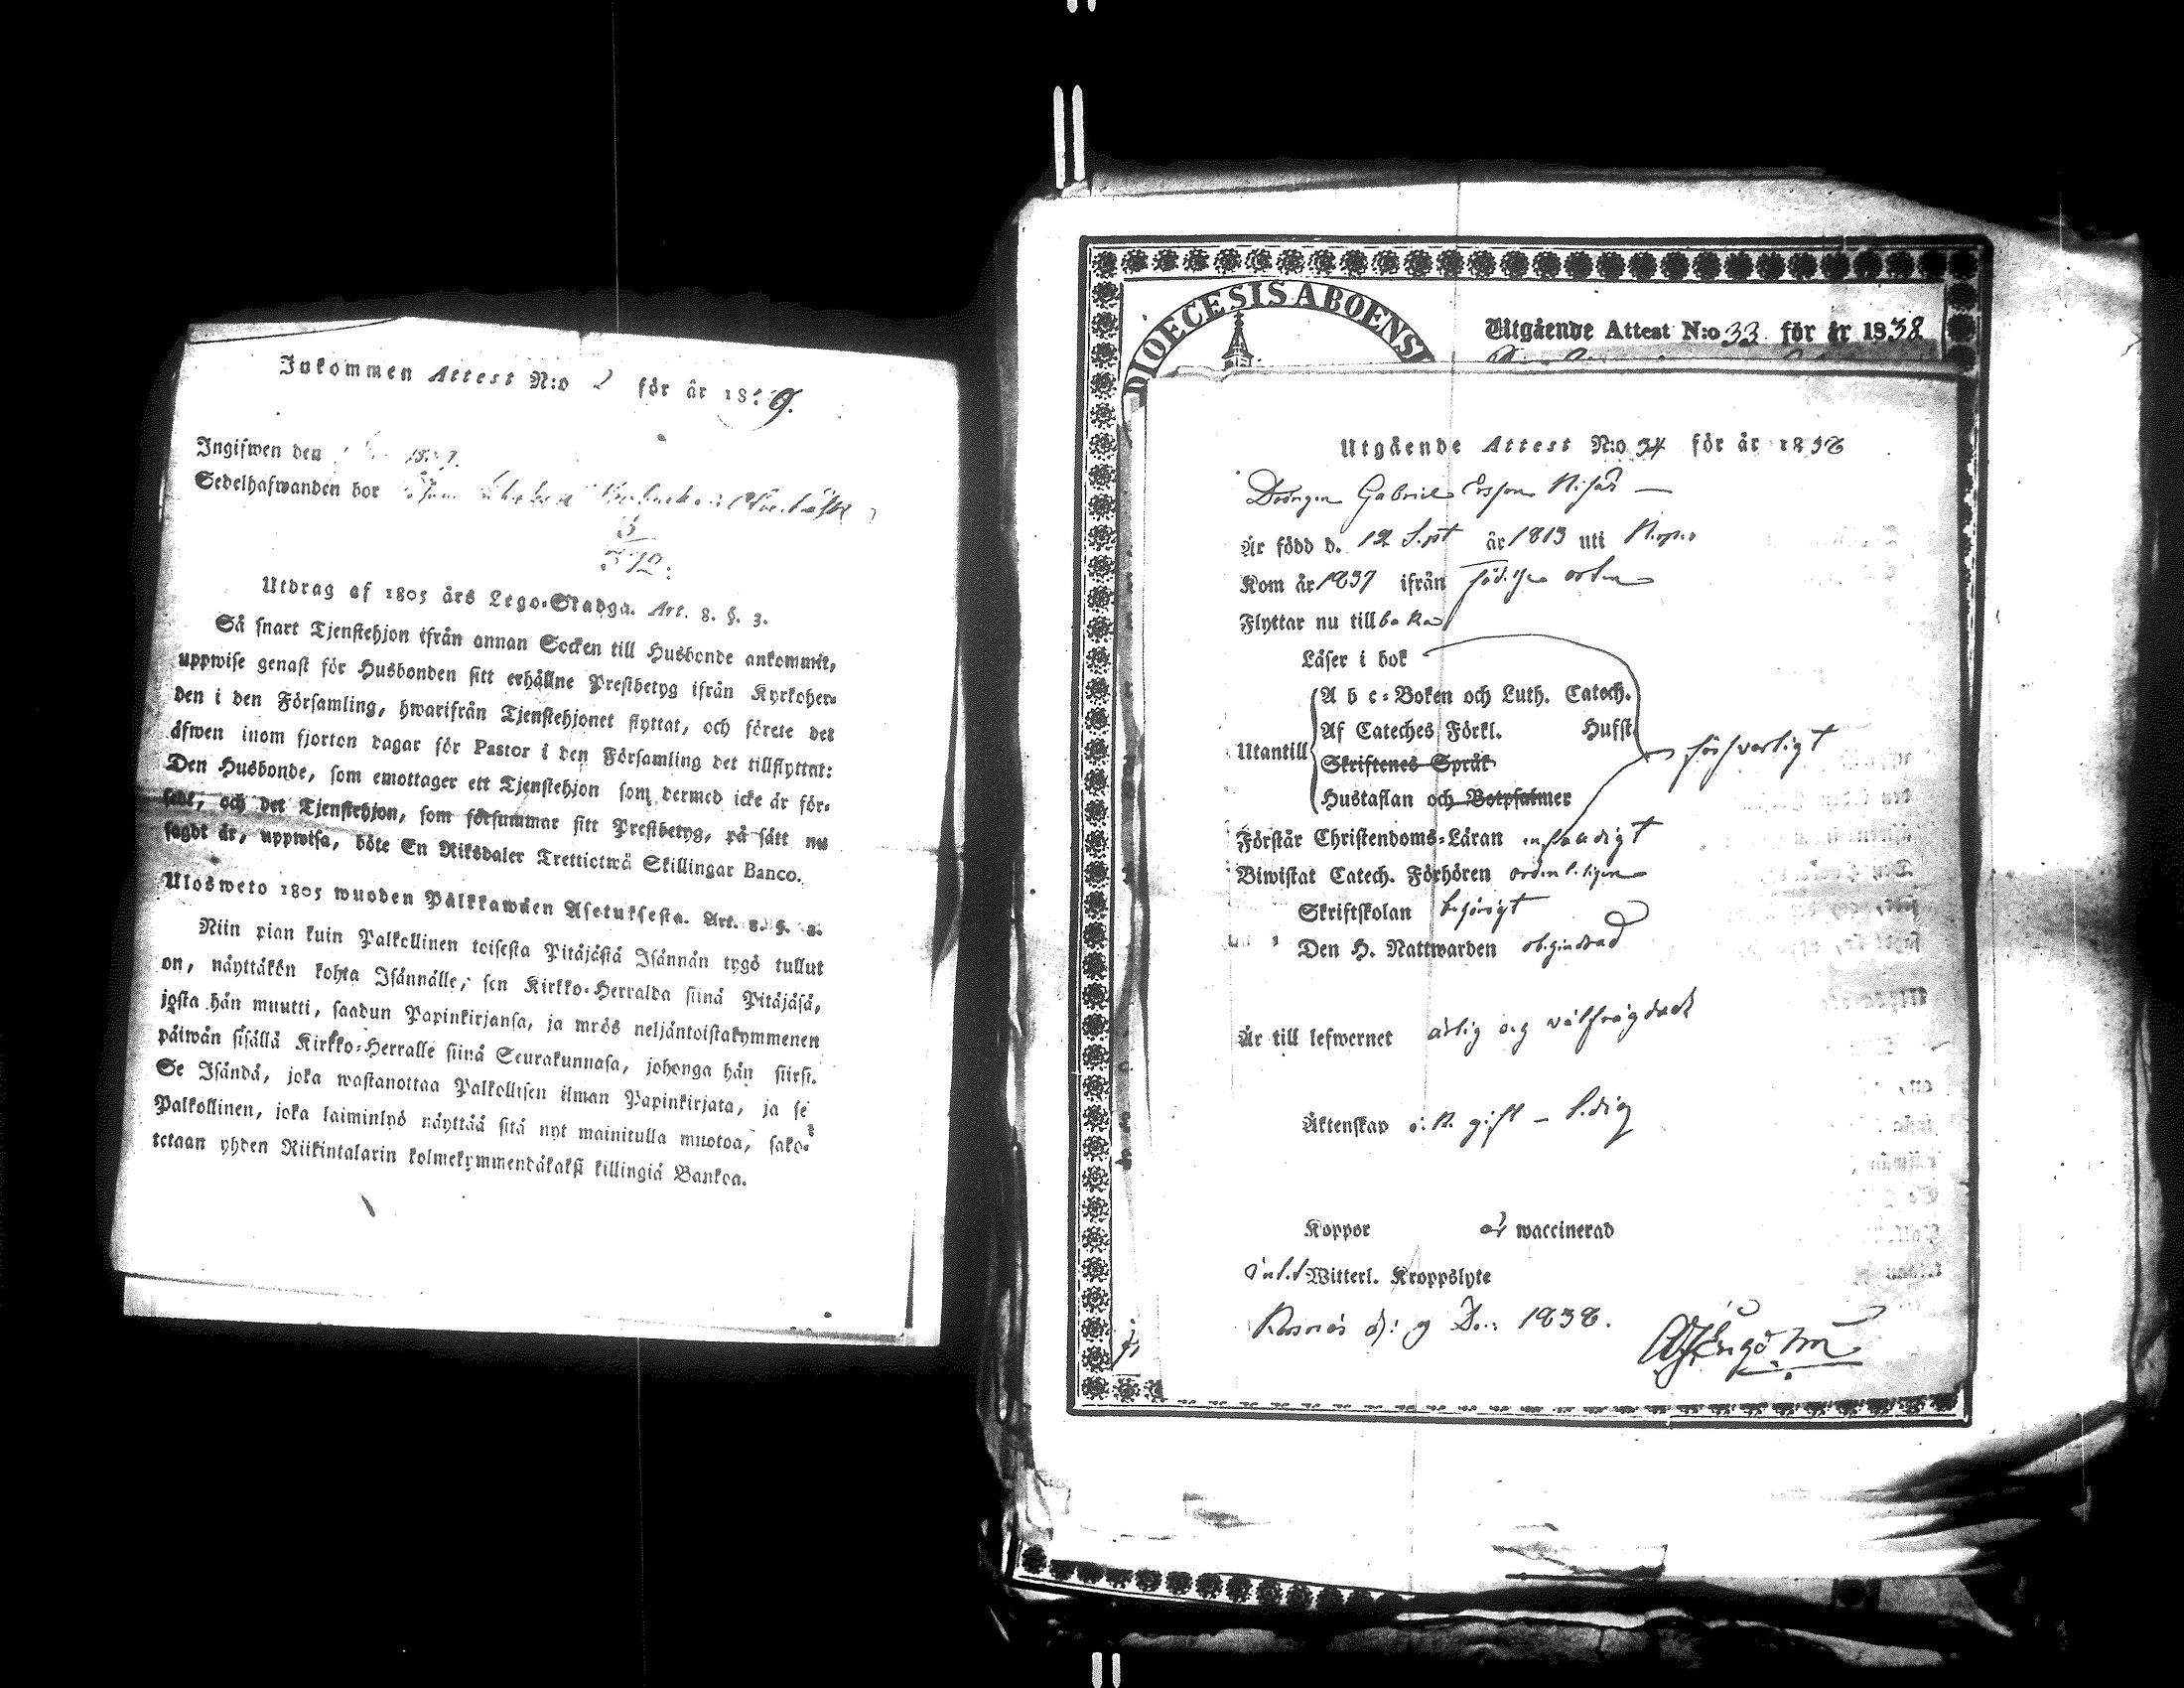 Inkommen Attest N:o 2 för år 1839.
Ingifwen den
Sedelhafwanden bor
3
372:
Utdrag af 1805 års Lego-Stadga. Art. 8. §. 3.
Så snart Tjenstehjon ifrån annan Socken till Husbonde ankommit,
uppwise genast för Husbonden sitt erhållne Prestbetyg ifrån Kyrkoher-
den i den Församling, hwarifrån Tjenstehjonet flyttat, och förete det
äfwen inom fjorton dagar för Pastor i den Församling det tillflyttat:
Den Husbonde, som emottager ett Tjenstehjon som dermed icke är för-
sedt, och det Tjenstehjon, som försummar sitt Prestbetyg, på sätt nu
sagdt är, uppwisa, böte En Riksdaler Trettiotwå Skillingar Banco.
Ulosweto 1805 wuoden Palkkawäen Asetuksesta. Art. 8. §. 3.
Niin pian kuin Palkollinen toisesta Pitäjästä Isännän tygö tullut
on, näyttäkön kohta Isännälle, sen Kirkko-Herralda siinä Pitäjäsä,
josta hän muutti, saadun Papinkirjansa, ja myös neljäntoistakymmenen
päiwän sisällä Kirkko-Herralle siinä Seurakunnasa, johonga hän siirsi.
Se Isändä, joka wastanottaa Palkollisen ilman Papinkirjata, ja se
Palkollinen, joka laiminlyö näyttää sitä nyt mainitulla muotoa, sako-
tetaan yhden Riikintalarin kolmekymmendäkaksi killingiä Bankoa.
DIOECESIS ABOENSI
Utgående Attest N:o 33 för år 1838
Utgående Attest N:o 34 för år 1838
Drängen Gabriel Ersson
Är född d. 12 Sept år 1813 uti
Kom år 1837 ifrån födelse orten
Flyttar nu tillbaka
Läser i bok
Utantill
A b c-Boken och Luth. Catech.
Af Cateches Förkl. Hufst.
Skriftenes Språk
Hustaflan och Botpsalmer
försvarligt
Förstår Christendoms-Läran
Biwistat Catech. Förhören ordentligen
Skriftskolan behörigt
Den H. Nattwarden obehindrad
Är till lefwernet ärlig och välfrägdad
Äktenskap ej gift - ledig
Koppor är waccinerad
intet Witterl. Kroppslyte
d: 9 Dec: 1838.